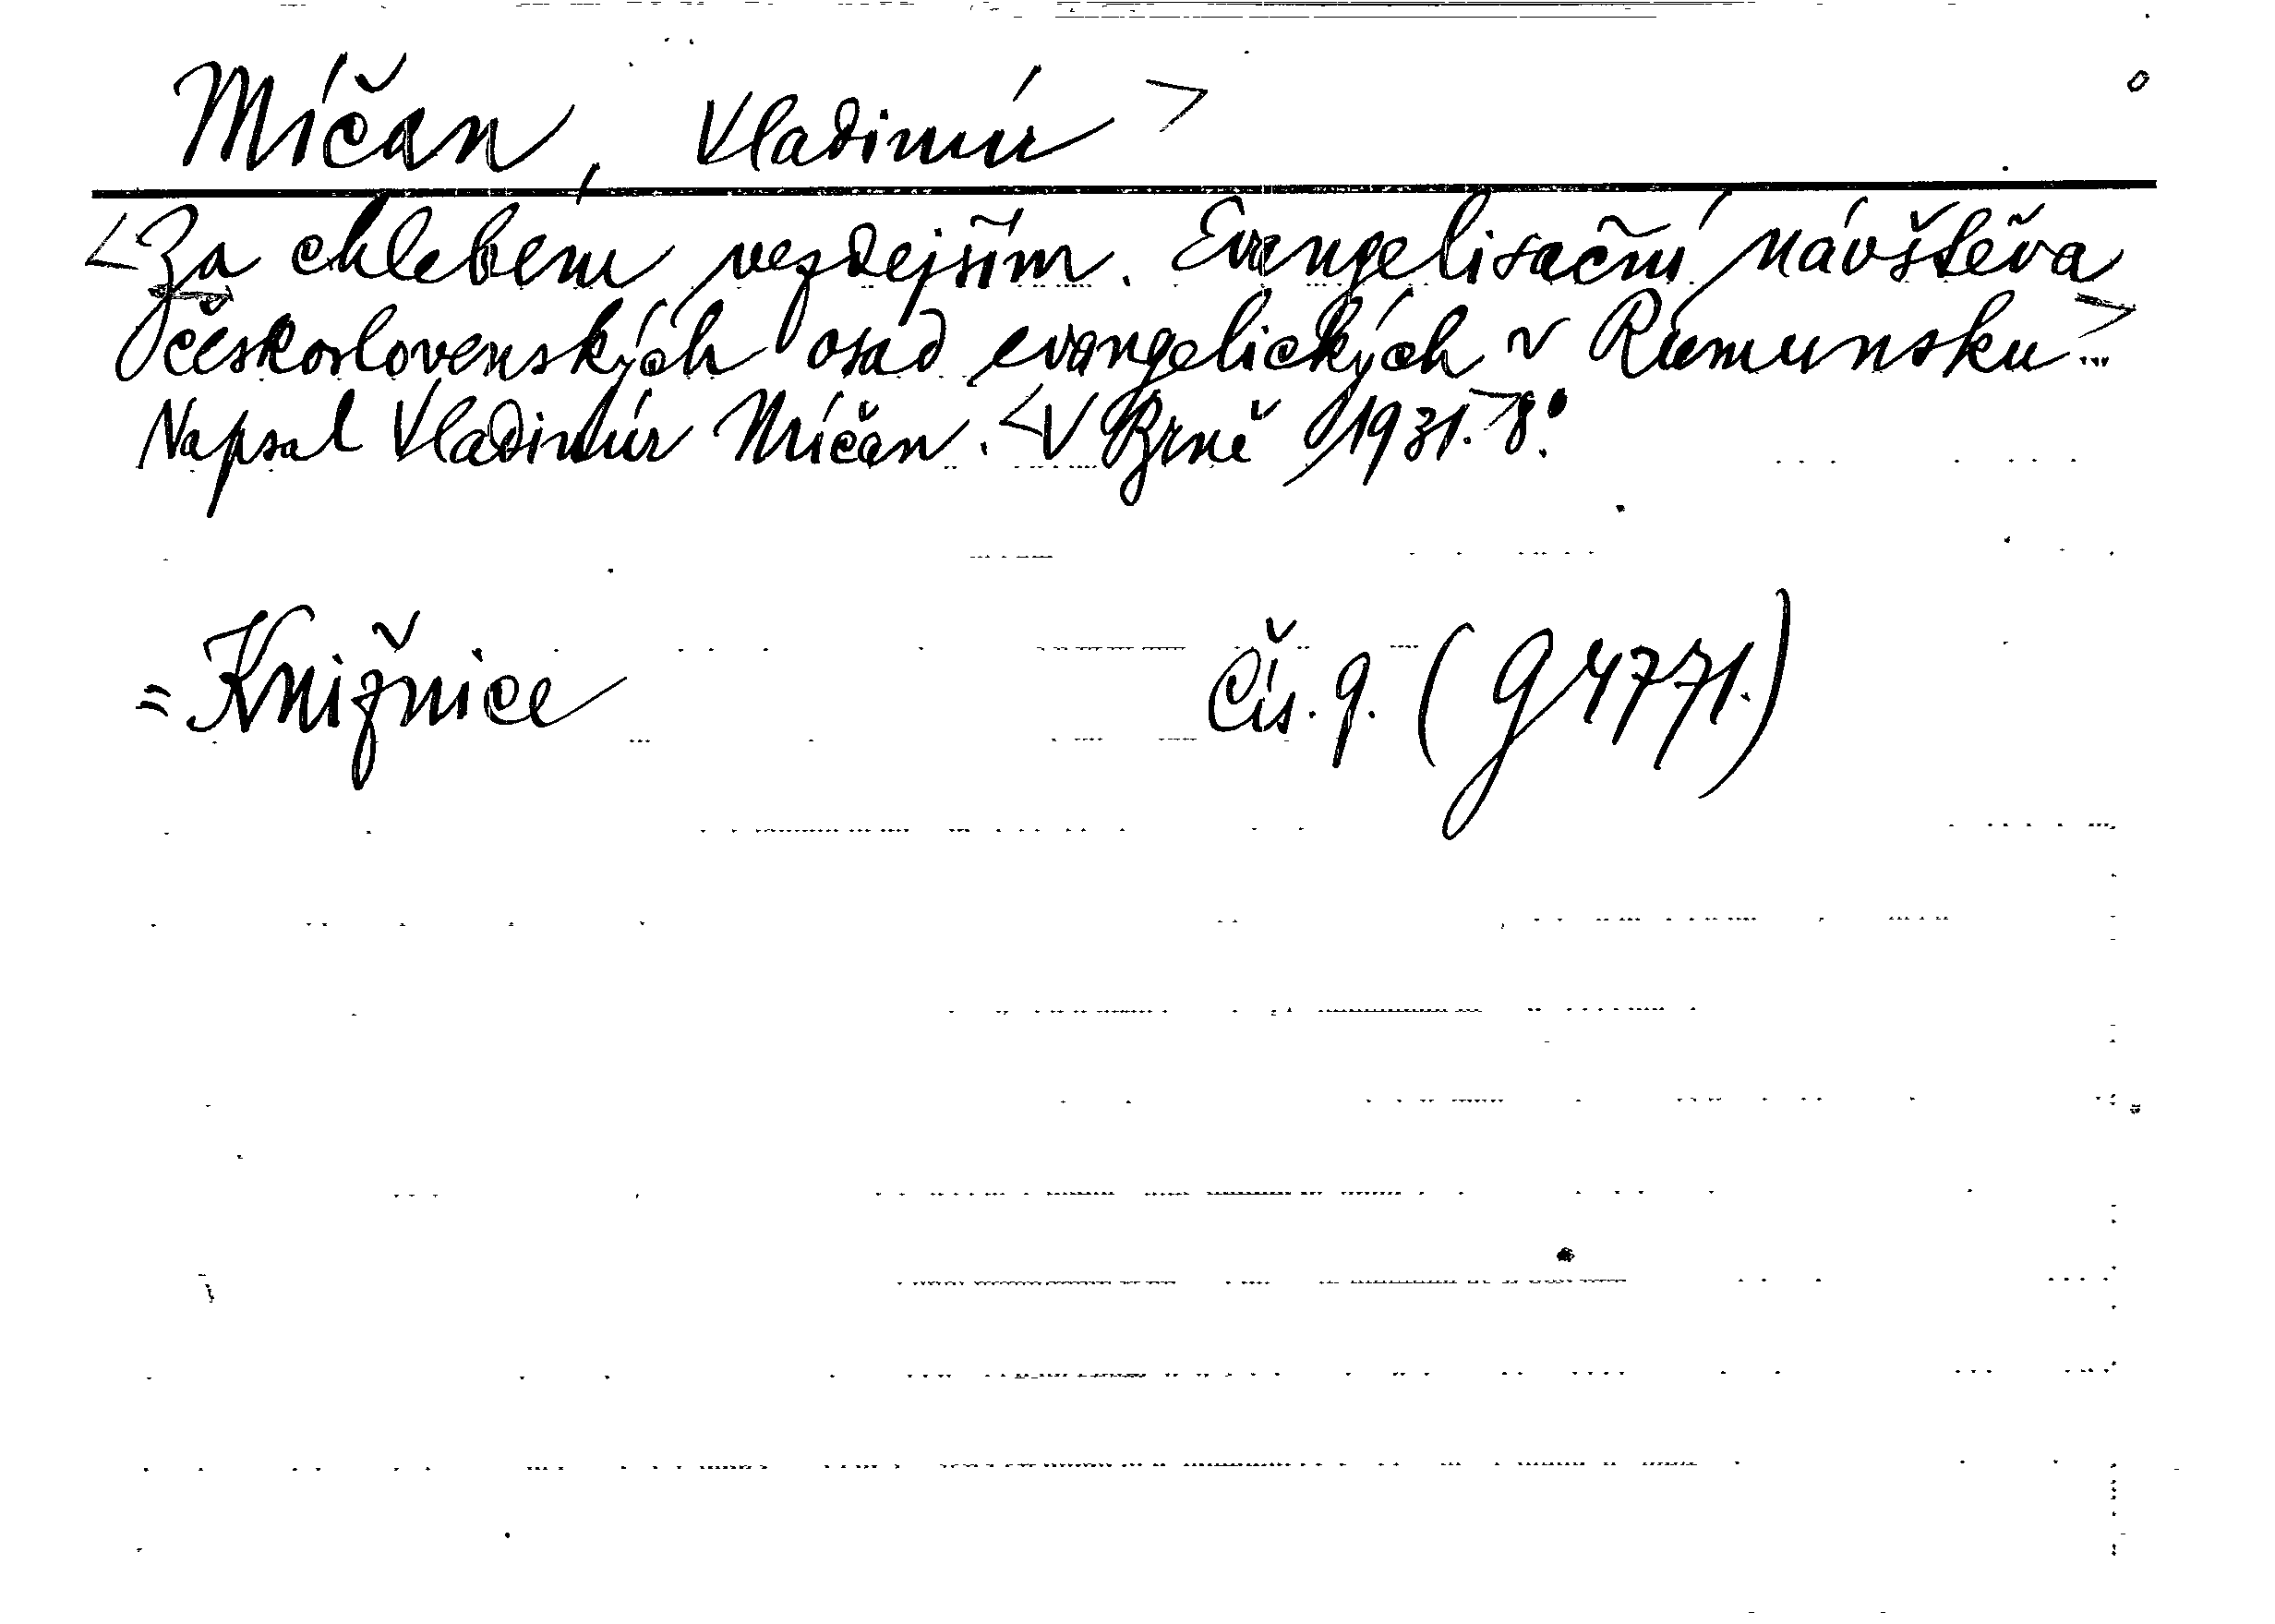 Míčan, Vladimír >
<Za chlebem vezdejším. Evangelisační návštěva
československých osad evangelických v Rumunsku>
Napsal Vladimír Míčan. <V Brně 1931.> 8°.
= Knižnice Čís. 9. (G 4771.)